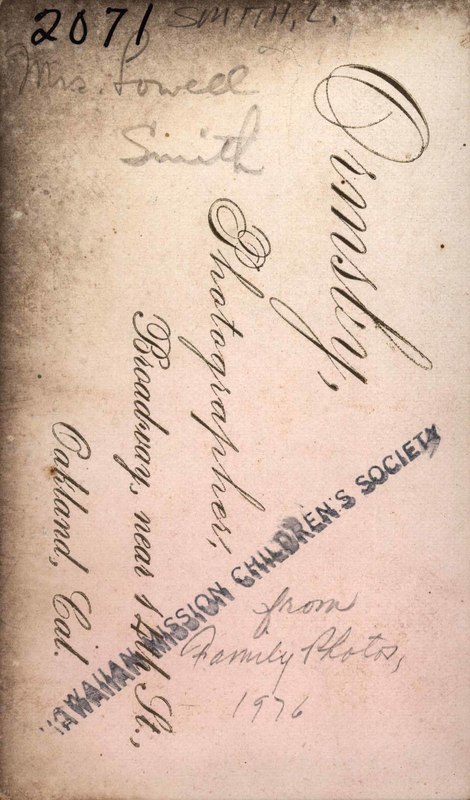 2071
SMITH, L.
Mrs. Lowell
Smith
Ormsby,
Photographer,
Broadway, near St.,
Oakland, Cal.
HAWAIIAN MISSION CHILDREN'S SOCIETY
from
Family Photos,
1976